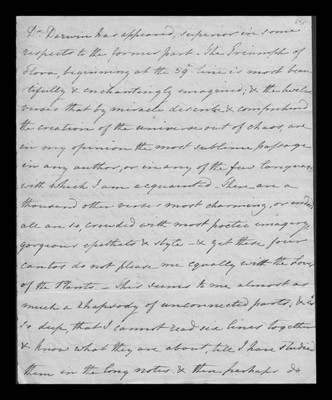 Dr. Darwin has appeared, superior in some
respects to the former part. The Triumph of
Flora, beginning at the 59th line is most beau
tifully & enchantingly imagined; & the twelve
verses that by miracle describe & comprehend
the creation of the universe out of chaos, are
in my opinion the most sublime passage
in any author, or in any of the few languages
with which I am acquainted. There are a
thousand other verses most charming, or indeed
all are so, crowded with most poetic imagery
gorgeous epithets & style - & yet these four
cantos do not please me equally with the Loves
of the Plants - This seems to me almost as
much a rhapsody of unconnected parts, & is
so deep, that I cannot read six lines together
& know what they are about, till I have studied
them in the long notes & then perhaps do